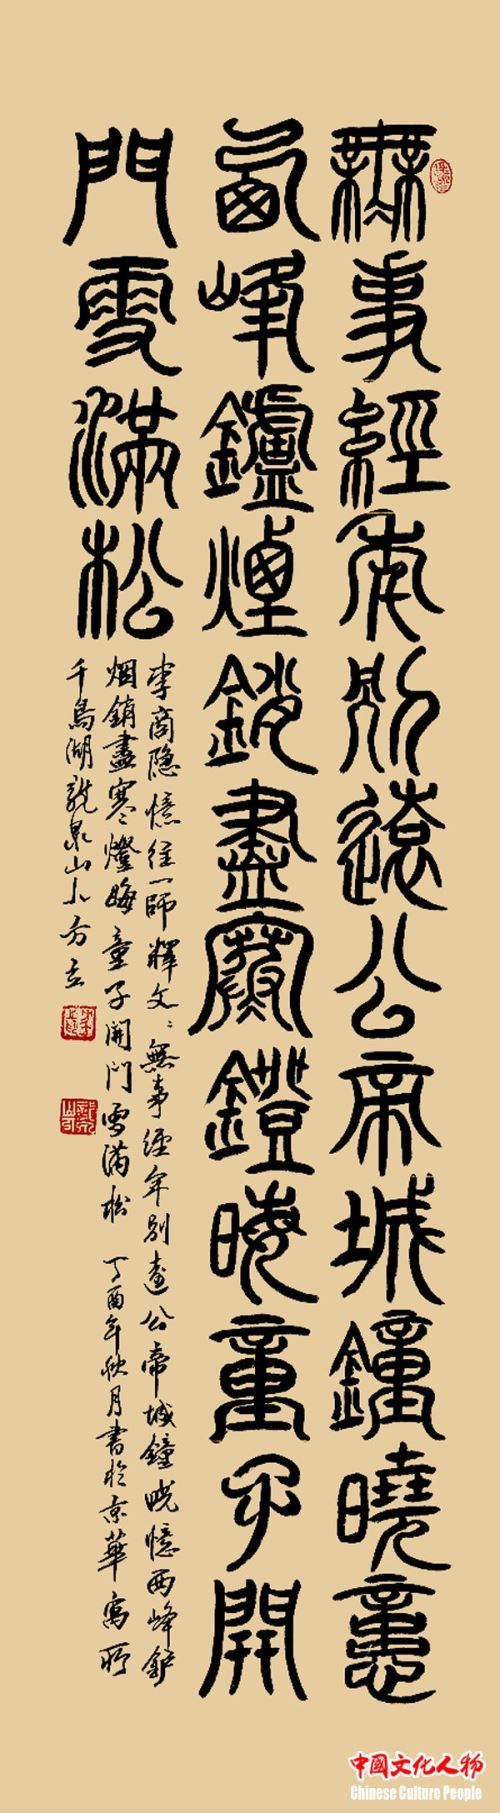 無事經年別遠公帝城鐘曉憶
西峰鑪煙銷盡寒鐙晦童子開
門雪滿松
李商隐憶住一師釋文：無事經年别遠公帝城鐘曉憶西峰鈩
烟銷盡寒燈晦童子開門雪满松 丁酉年秋月書於京華寓所
千島湖龍泉山人方立
中國文化人物
Chinese Culture People